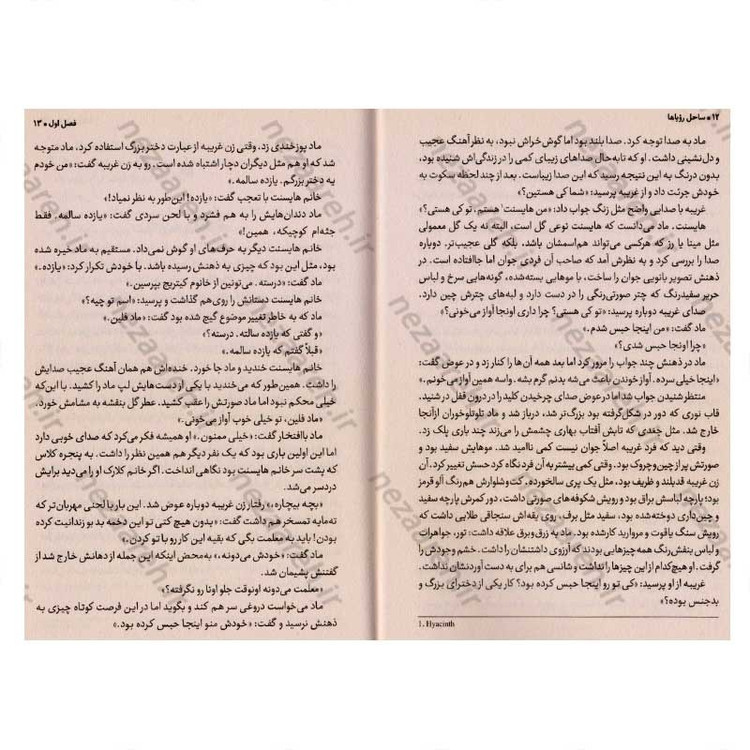 ۱۲ • ساحل رؤیاها
ماد به صدا توجه کرد. صدا بلند بود اما گوش خراش نبود، به نظر آهنگ عجیب
و دل‌نشینی داشت. او که تا به حال صداهای زیبای کمی را در زندگی‌اش شنیده بود،
بدون درنگ به این نتیجه رسید که این صدا زیباست. بعد از چند لحظه سکوت به
خودش جرئت داد و از غریبه پرسید: «شما کی هستین؟»
غریبه با صدایی واضح مثل زنگ جواب داد: «من هایسنت¹ هستم. تو کی هستی؟»
هایسنت. ماد می‌دانست که هایسنت نوعی گل است، البته نه یک گل معمولی
مثل مینا یا رز که هرکسی می‌تواند هم‌اسمشان باشد، بلکه گلی عجیب‌تر. دوباره
صدا را بررسی کرد و به نظرش آمد که صاحب آن فردی جوان اما جاافتاده است. در
ذهنش تصویر بانویی جوان را ساخت، با موهایی بسته‌شده، گونه‌هایی سرخ و لباس
حریر سفیدرنگ که چتر صورتی‌رنگی را در دست دارد و لبه‌های چترش چین دارد.
صدای غریبه دوباره پرسید: «تو کی هستی؟ چرا داری اونجا آواز می‌خونی؟»
ماد گفت: «من اینجا حبس شدم.»
«چرا اونجا حبس شدی؟»
ماد در ذهنش چند جواب را مرور کرد اما بعد همه آن‌ها را کنار زد و در عوض گفت:
«اینجا خیلی سرده. آواز خوندن باعث می‌شه بدنم گرم بشه. واسه همین آواز می‌خونم.»
منتظر شنیدن جواب شد اما در عوض صدای چرخیدن کلید را در درون قفل در شنید.
قاب نوری که دور در شکل گرفته بود بزرگ‌تر شد، در باز شد و ماد تلوتلوخوران از آنجا
خارج شد. مثل جغدی که تابش آفتاب بهاری چشمش را می‌زند چند باری پلک زد.
وقتی دید که فرد غریبه اصلاً جوان نیست کمی ناامید شد. موهایش سفید بود و
صورتش پر از چین و چروک بود. وقتی کمی بیشتر به آن فرد نگاه کرد حسش تغییر کرد. آن
زن غریبه قدبلند و ظریف بود، مثل یک پری سالخورده. کت‌وشلوارش هم‌رنگ آلو قرمز
بود؛ پارچه لباسش براق بود و رویش شکوفه‌های صورتی داشت، دور کمرش پارچه سفید
و چین‌داری دوخته‌شده بود، سفید مثل برف. روی یقه‌اش سنجاقی طلایی داشت که
رویش سنگ یاقوت و مروارید کارشده بود. ماد به زرق‌وبرق علاقه داشت؛ تور، جواهرات
و لباس بنفش‌رنگ همه چیزهایی بودند که آرزوی داشتنشان را داشت. خشم وجودش را
گرفت. او هیچ‌کدام از این چیزها را نداشت و شانسی هم برای به دست آوردنشان نداشت.
غریبه از او پرسید: «کی تو رو اینجا حبس کرده بود؟ کار یکی از دخترای بزرگ و
بدجنس بوده؟»
1. Hyacinth
فصل اول • ۱۳
ماد پوزخندی زد. وقتی زن غریبه از عبارت دختر بزرگ استفاده کرد، ماد متوجه
شد که او هم مثل دیگران دچار اشتباه شده است. رو به زن غریبه گفت: «من خودم
یه دختر بزرگم. یازده سالمه.»
خانم هایسنت با تعجب گفت: «یازده! این‌طور به نظر نمیاد!»
ماد دندان‌هایش را به هم فشرد و با لحن سردی گفت: «یازده سالمه. فقط
جثه‌ام کوچیکه، همین!»
خانم هایسنت دیگر به حرف‌های او گوش نمی‌داد. مستقیم به ماد خیره شده
بود، مثل این بود که چیزی به ذهنش رسیده باشد. با خودش تکرار کرد: «یازده.»
ماد گفت: «درسته. می‌تونین از خانوم کیتریج بپرسین.»
خانم هایسنت دستانش را روی هم گذاشت و پرسید: «اسم تو چیه؟»
ماد که به خاطر تغییر موضوع گیج شده بود گفت: «ماد فلین.»
«و گفتی که یازده سالته. درسته؟»
«قبلاً گفتم که یازده سالمه.»
خانم هایسنت خندید و ماد جا خورد. خنده‌اش هم همان آهنگ عجیب صدایش
را داشت. همین‌طور که می‌خندید با یکی از دست‌هایش لپ ماد را کشید. با این‌که
خیلی محکم نبود اما ماد صورتش را عقب کشید. عطر گل بنفشه به مشامش خورد.
«ماد فلین، تو خیلی خوب آواز می‌خونی.»
ماد با افتخار گفت: «خیلی ممنون.» او همیشه فکر می‌کرد که صدای خوبی دارد
اما این اولین باری بود که یک نفر دیگر هم همین نظر را داشت. به پنجره کلاس
که پشت سر خانم هایسنت بود نگاهی انداخت. اگر خانم کلارک او را می‌دید برایش
دردسر می‌شد.
«بچه بیچاره.» رفتار زن غریبه دوباره عوض شد. این بار با لحنی مهربان‌تر که
ته‌مایه تمسخر هم داشت گفت: «بدون هیچ کتی تو این دخمه بد بو زندانیت کرده
بودن! باید به معلمت بگی که بقیه این کار رو با تو کردن.»
ماد گفت: «خودش می‌دونه.» به‌محض اینکه این جمله از دهانش خارج شد از
گفتنش پشیمان شد.
«معلمت می‌دونه اونوقت جلو اونا رو نگرفته؟»
ماد می‌خواست دروغی سر هم کند و بگوید اما در این فرصت کوتاه چیزی به
ذهنش نرسید و گفت: «خودش منو اینجا حبس کرده بود.»
nezaareh.ir